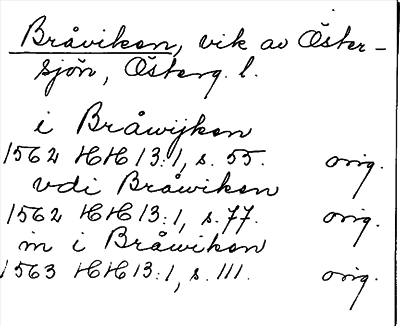 Bråviken, vik av Öster-
sjön, Österg. l.
i Bråwijken
1562 HH 13:1, s. 55. orig.
vdi Bråwiken
1562 HH 13:1, s. 77. orig.
in i Bråwiken
1563 HH 13:1, s. 111. orig.